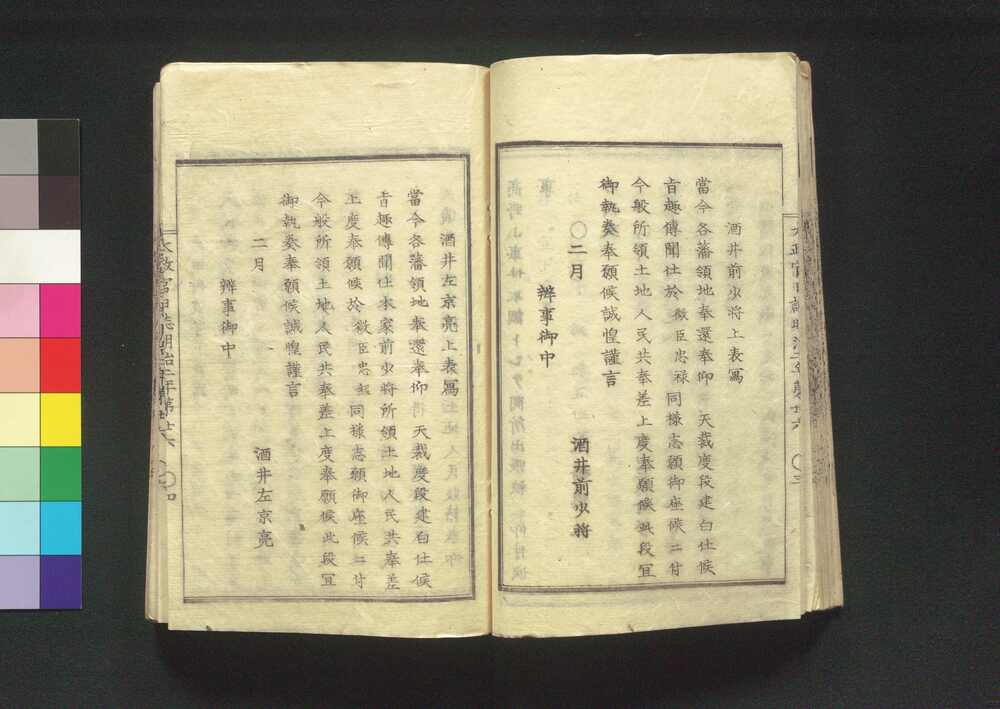 酒井前少將上表寫
當今各藩領地奉還奉仰　天裁度段建白仕候
旨趣傳聞仕於　微臣忠禄同樣志願御座候ニ付
今般所領土地人民共奉差上度奉願候此段宜
御執奏奉願候誠惶謹言
〇二月　酒井前少將
辨事御中
酒井左京亮上表寫
當今各藩領地奉還奉仰　天裁度段建白仕候
旨趣傳聞仕本家前少將所領土地人民共奉差
上度奉願候於　微臣忠　同樣志願御座候ニ付
今般所領土地人民共奉差上度奉願候此段宜
御執奏奉願候誠惶謹言
二月　酒井左京亮
辨事御中
太政官日誌明治二年第廿六　〇四